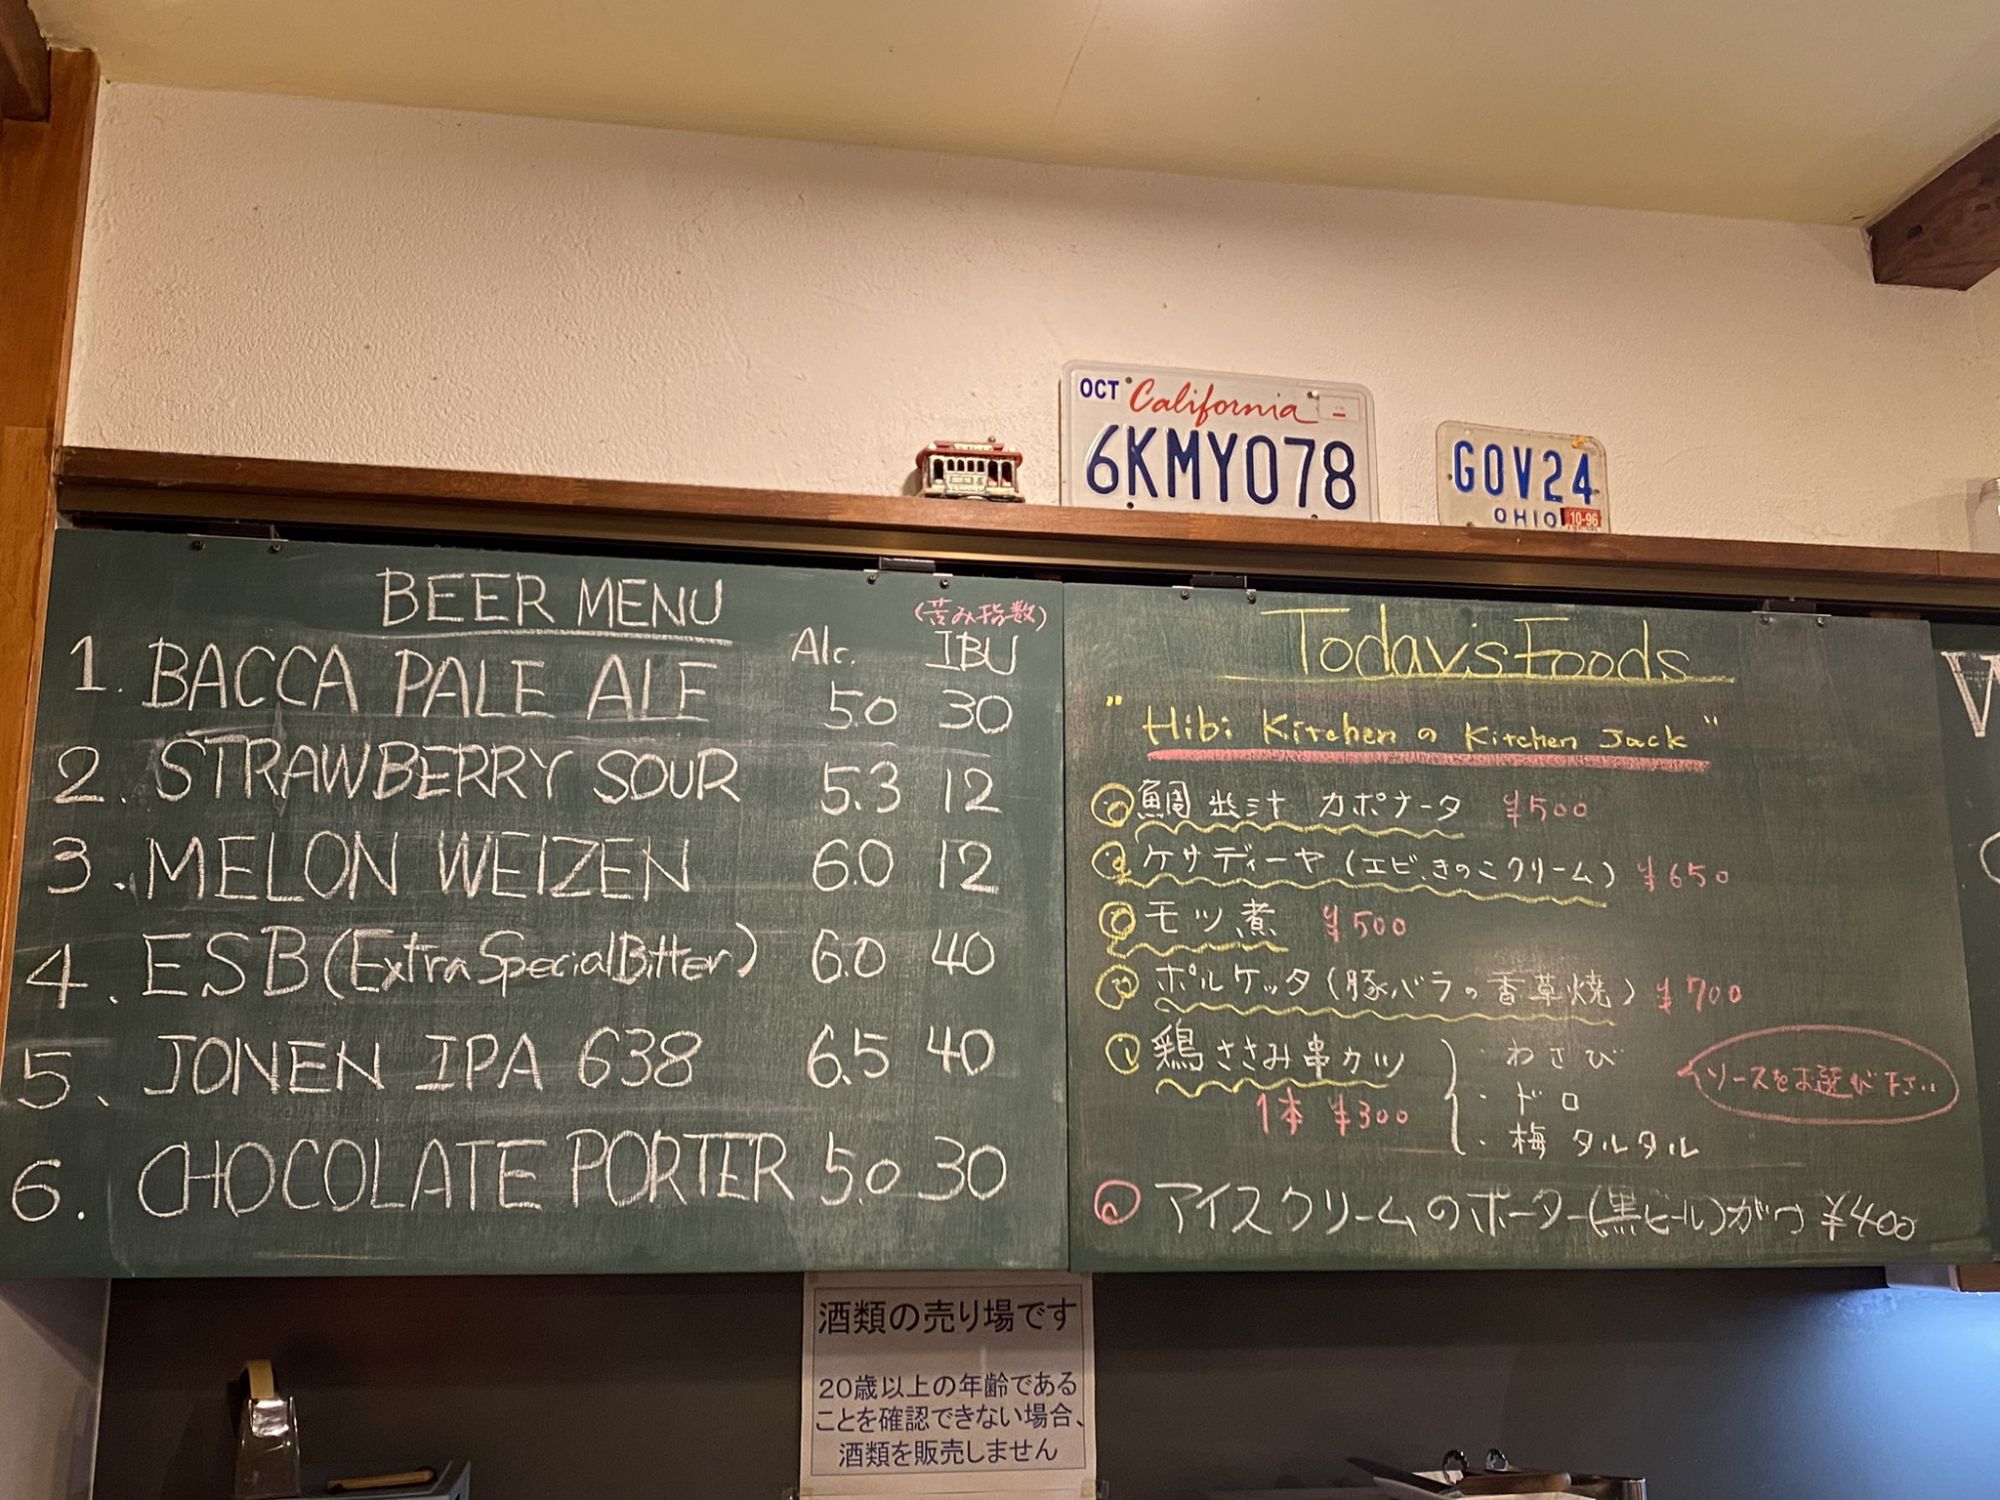 OCT California
6KMY078
GOV24
OHIO 10-96
BEER MENU
(苦み指数)
Alc. IBU
1. BACCA PALE ALE 5.0 30
2. STRAWBERRY SOUR 5.3 12
3. MELON WEIZEN 6.0 12
4. ESB (Extra Special Bitter) 6.0 40
5. JONEN IPA 638 6.5 40
6. CHOCOLATE PORTER 5.0 30
Today's Foods
"Hibi Kitchen の Kitchen Jack"
鯛出汁 カポナータ ¥500
ケサディーヤ(エビ、きのこクリーム) ¥650
モツ煮 ¥500
ポルケッタ(豚バラの香草焼) ¥700
鶏ささみ串カツ
1本 ¥300
・わさび
・ドロ
・梅タルタル
ソースをお選び下さい
アイスクリームのポーター(黒ビール)がけ ¥400
W
酒類の売り場です
20歳以上の年齢である
ことを確認できない場合、
酒類を販売しません